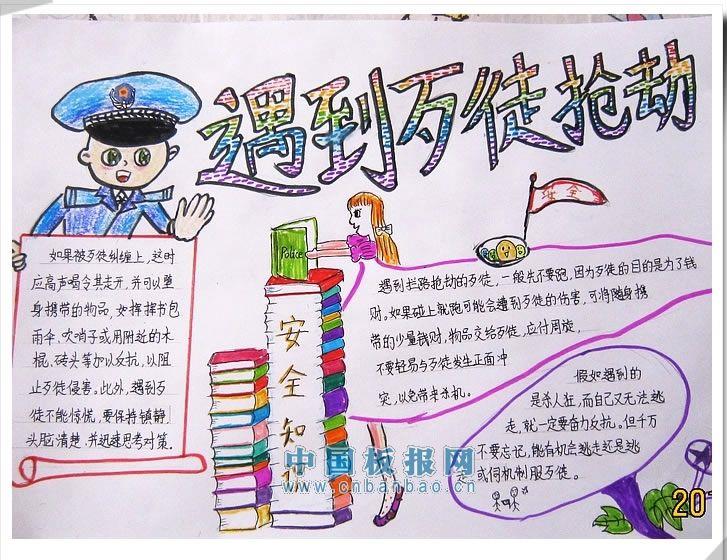 遇到歹徒抢劫
如果被歹徒纠缠上，这时
应高声喝令其走开，并可以
身携带的物品，如挥挥书包
雨伞、吹哨子或用附近的木
棍、砖头等加以反抗，以阻
止歹徒侵害。此外，遇到歹
徒不能惊慌，要保持镇静，
头脑清楚，并迅速思考对策。
Police
安全知
安全
遇到拦路抢劫的歹徒，一般先不要跑，因为歹徒的目的是为了钱
财。如果碰上就跑可能会遭到歹徒的伤害，可将随身携
带的少量钱财，物品交给歹徒，应付周旋，
不要轻易与歹徒发生正面冲
突，以免带来杀机。
假如遇到的
是杀人狂，而自己又无法逃
走，就一定要奋力反抗。但千万
不要忘记，能有机会逃走还是逃
走或伺机制服歹徒。
中国板报网
www.cnbanbao.cn
20